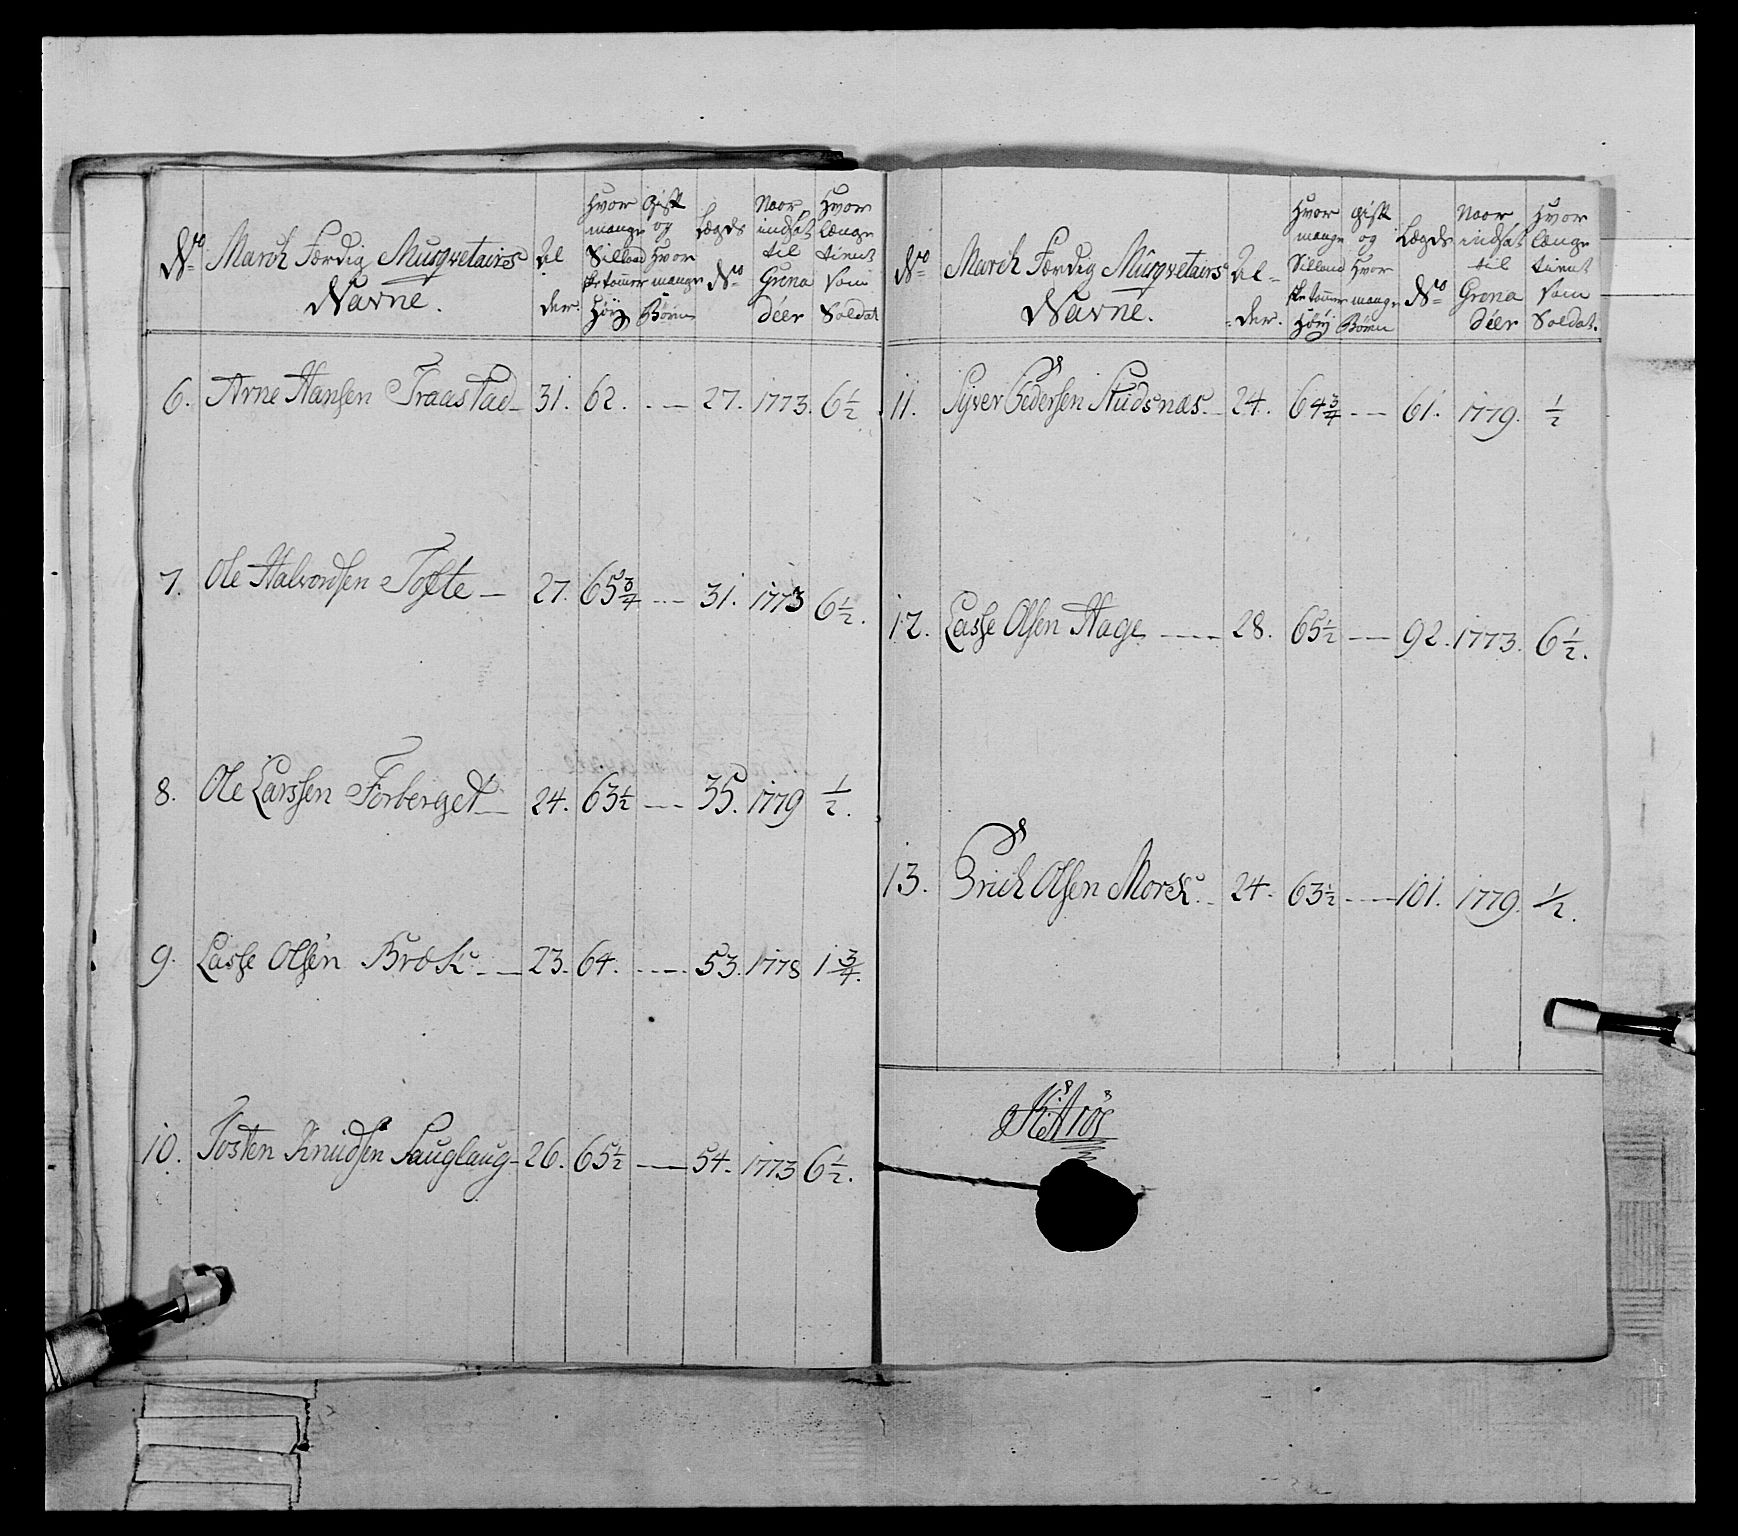 No March Færdig Musqvetairs Navne. Al der. Hvor mange Silland ske tommer Høy Gift og Hvor mange Børn Lægds No Naar indsat til Grena deer Hvor længe tient som Soldat
6. Arne Hansen Traastad 31. 62. . — 27. 1773. 6 1/2
7. Ole Halvordsen Tofte — 27. 65 3/4 ... — 31. 1773 6 1/2.
8. Ole Larssen Forberget — 24. 63 1/2 — - 35. 1779 1/2.
9. Lasse Olsen Bræk. — 23. 64. . — 53. 1778 1 3/4.
10. Tosten Knudsen Sauglaug - 26. 65 1/2 — 54. 1773 6 1/2.
No March Færdig Musqvetairs Navne. Al- der. Hvor mange Silland ske tommer Høy Gift og Hvor mange Børn Lægds No Naar indsat til Grena deer Hvor længe tient som Soldat.
11. Syver Pedersen Studsnæs. 24. 64 3/4 - — 61. 1779. 1/2
12. Lasse Olsen Hage — 28. 65 1/2 — 92. 1773. 6 1/2.
13. Erich Olsen Morck. 24. 63 1/2 - — 101. 1779. 1/2.